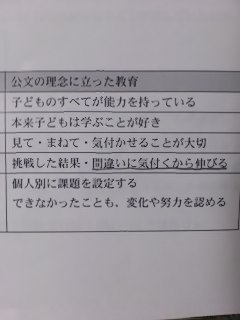 公文の理念に立った教育
子どものすべてが能力を持っている
本来子どもは学ぶことが好き
見て・まねて・気付かせることが大切
挑戦した結果・間違いに気付くから伸びる
個人別に課題を設定する
できなかったことも、変化や努力を認める